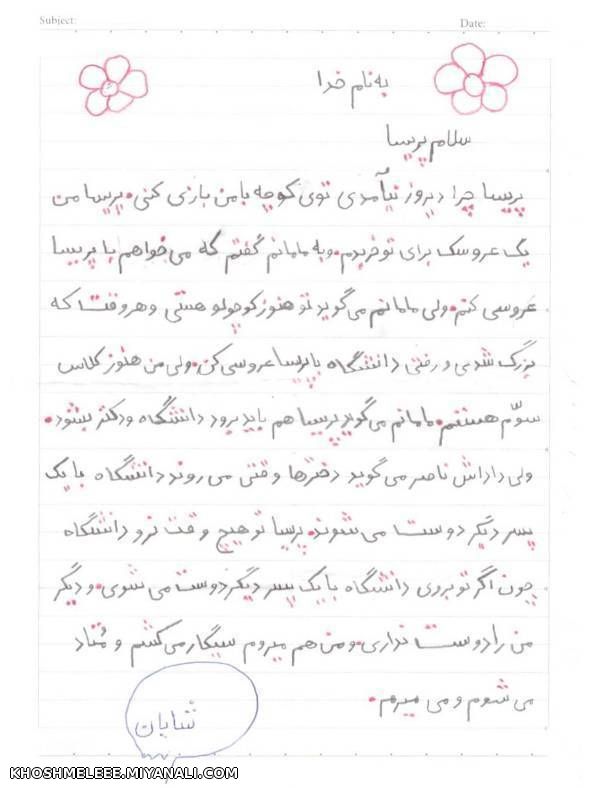 Subject:
Date:
به نام خدا
سلام پریسا
پریسا چرا دیروز نیآمدی توی کوچه با من بازی کنی. پریسا من
یک عروسک برای تو خریدم. و به مامانم گفتم که می خواهم با پریسا
عروسی کنم. ولی مامانم می گوید تو هنوز کوچولو هستی و هر وقت که
بزرگ شدی و رفتی دانشگاه با پریسا عروسی کن. ولی من هنوز کلاس
سوّم هستم. مامانم می گوید پریسا هم باید برود دانشگاه و دکتر بشود.
ولی داداش ناصر می گوید دخترها وقتی می روند دانشگاه با یک
پسر دیگر دوست می شوند. پریسا تو هیچ وقت نرو دانشگاه
چون اگر تو بروی دانشگاه با یک پسر دیگر دوست می شوی. و دیگر
من را دوست نداری. و من هم میروم سیگار می کشم و مُتاد
می شوم و می میرم.
شایان
KHOSHMELEEE.MIYANALI.COM